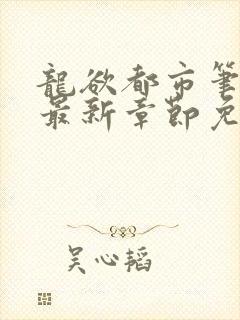 龍欲都市筆
最新章節免
吴心韬